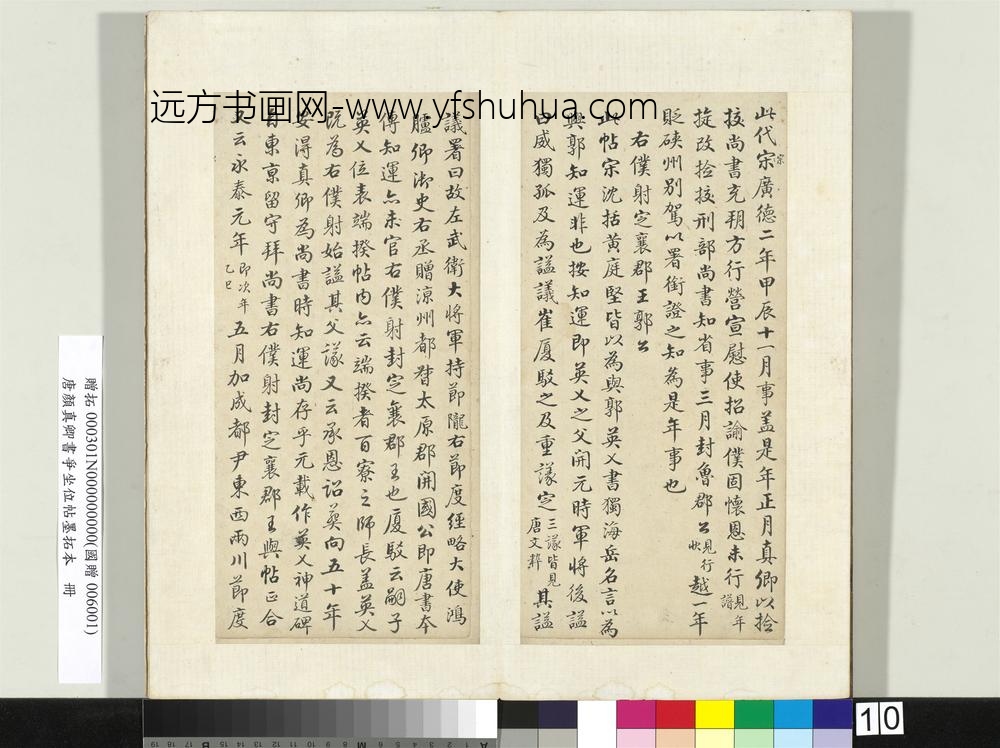 远方书画网-www.yfshuhua.com
此代宗廣德二年甲辰十一月事盖是年正月真卿以捡
挍尚書充朔方行營宣慰使招諭僕固懷恩未行見年譜
旋改捡挍刑部尚書知省事三月封魯郡公見行狀越一年
貶硤州別駕以署銜證之知為是年事也
右僕射定襄郡王郭公
此帖宋沈括黄庭堅皆以為與郭英乂書獨海岳名言以為
與郭知運非也按知運即英乂之父開元時軍將後謚
曰威獨孤及為謚議崔厦駁之及重議定三議皆見唐文粹其謚
議署曰故左武衛大将軍持節隴右節度經略大使鴻
臚卿御史右丞贈涼州都督太原郡開國公即唐書本
傳知運亦未官右僕射封定襄郡王也厦駁云嗣子
英乂位表端揆帖内亦云端揆者百寮之師長盖英乂
既為右僕射始謚其父議又云承恩詔葬向五十年
安得真卿為尚書時知運尚存乎元載作英乂神道碑
自東京留守拜尚書右僕射封定襄郡王與帖正合
又云永泰元年即次年乙巳五月加成都尹東西兩川節度
贈拓 000301N000000000(國贈 006001)
唐顏真卿書爭坐位帖墨拓本 冊
10